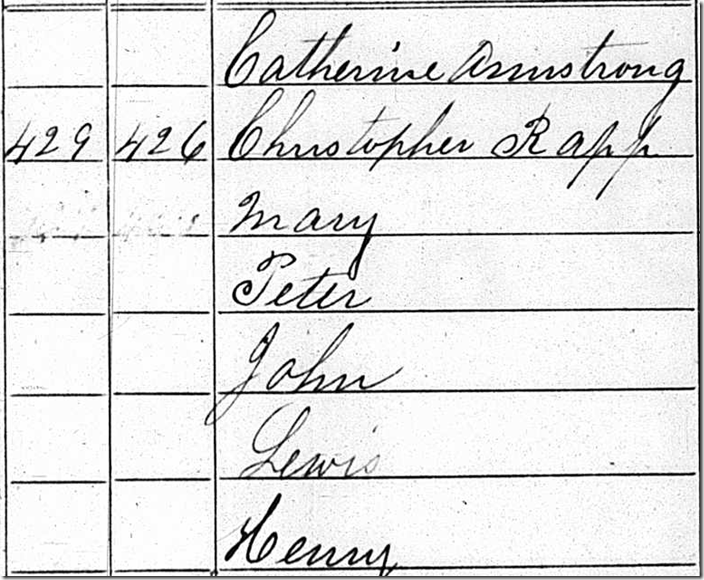 Catherine Armstrong
429 426 Christopher Rapp
Mary
Peter
John
Lewis
Henry